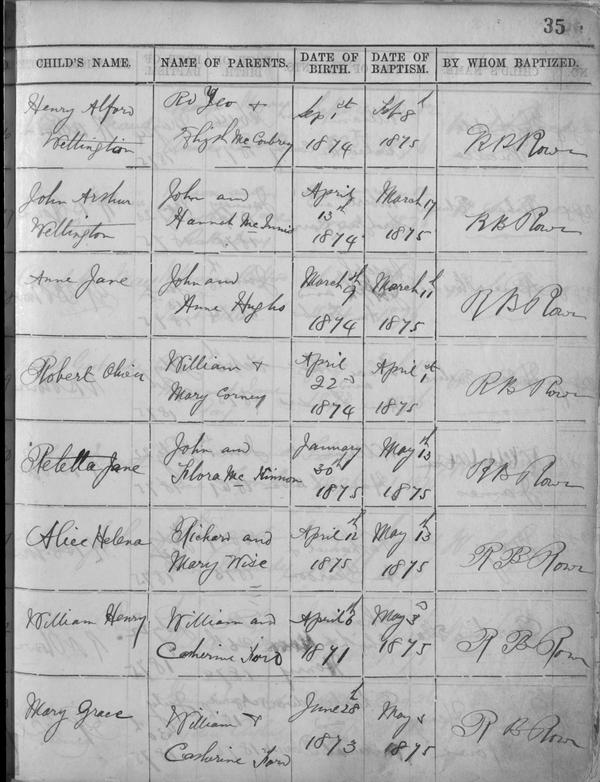 35
CHILD'S NAME. NAME OF PARENTS. DATE OF BIRTH. DATE OF BAPTISM. BY WHOM BAPTIZED.
Henry Alford Rd Yeo + Sep 1st Feb 8th
Wellington Elizth McCoubrey 1874 1875 R B Rowe
John Arthur John and April March 17
Wellington Hannah McInnis 13th 1874 1875 R B Rowe
Anne Jane John and March 9th March 11th
Anne Hughs 1874 1875 R B Rowe
Robert Oliver William + April April 1st
Mary Corney 22nd 1874 1875 R B Rowe
Jane John and January May 13th
Flora McKinnon 30th 1875 1875 R B Rowe
Alice Helena Richard and April 12th May 13th
Mary Wise 1875 1875 R B Rowe
William Henry William and April 6th May 3d
Catherine Ford 1871 1875 R B Rowe
Mary Grace William + June 28th May
Catherine Ford 1873 1875 R B Rowe